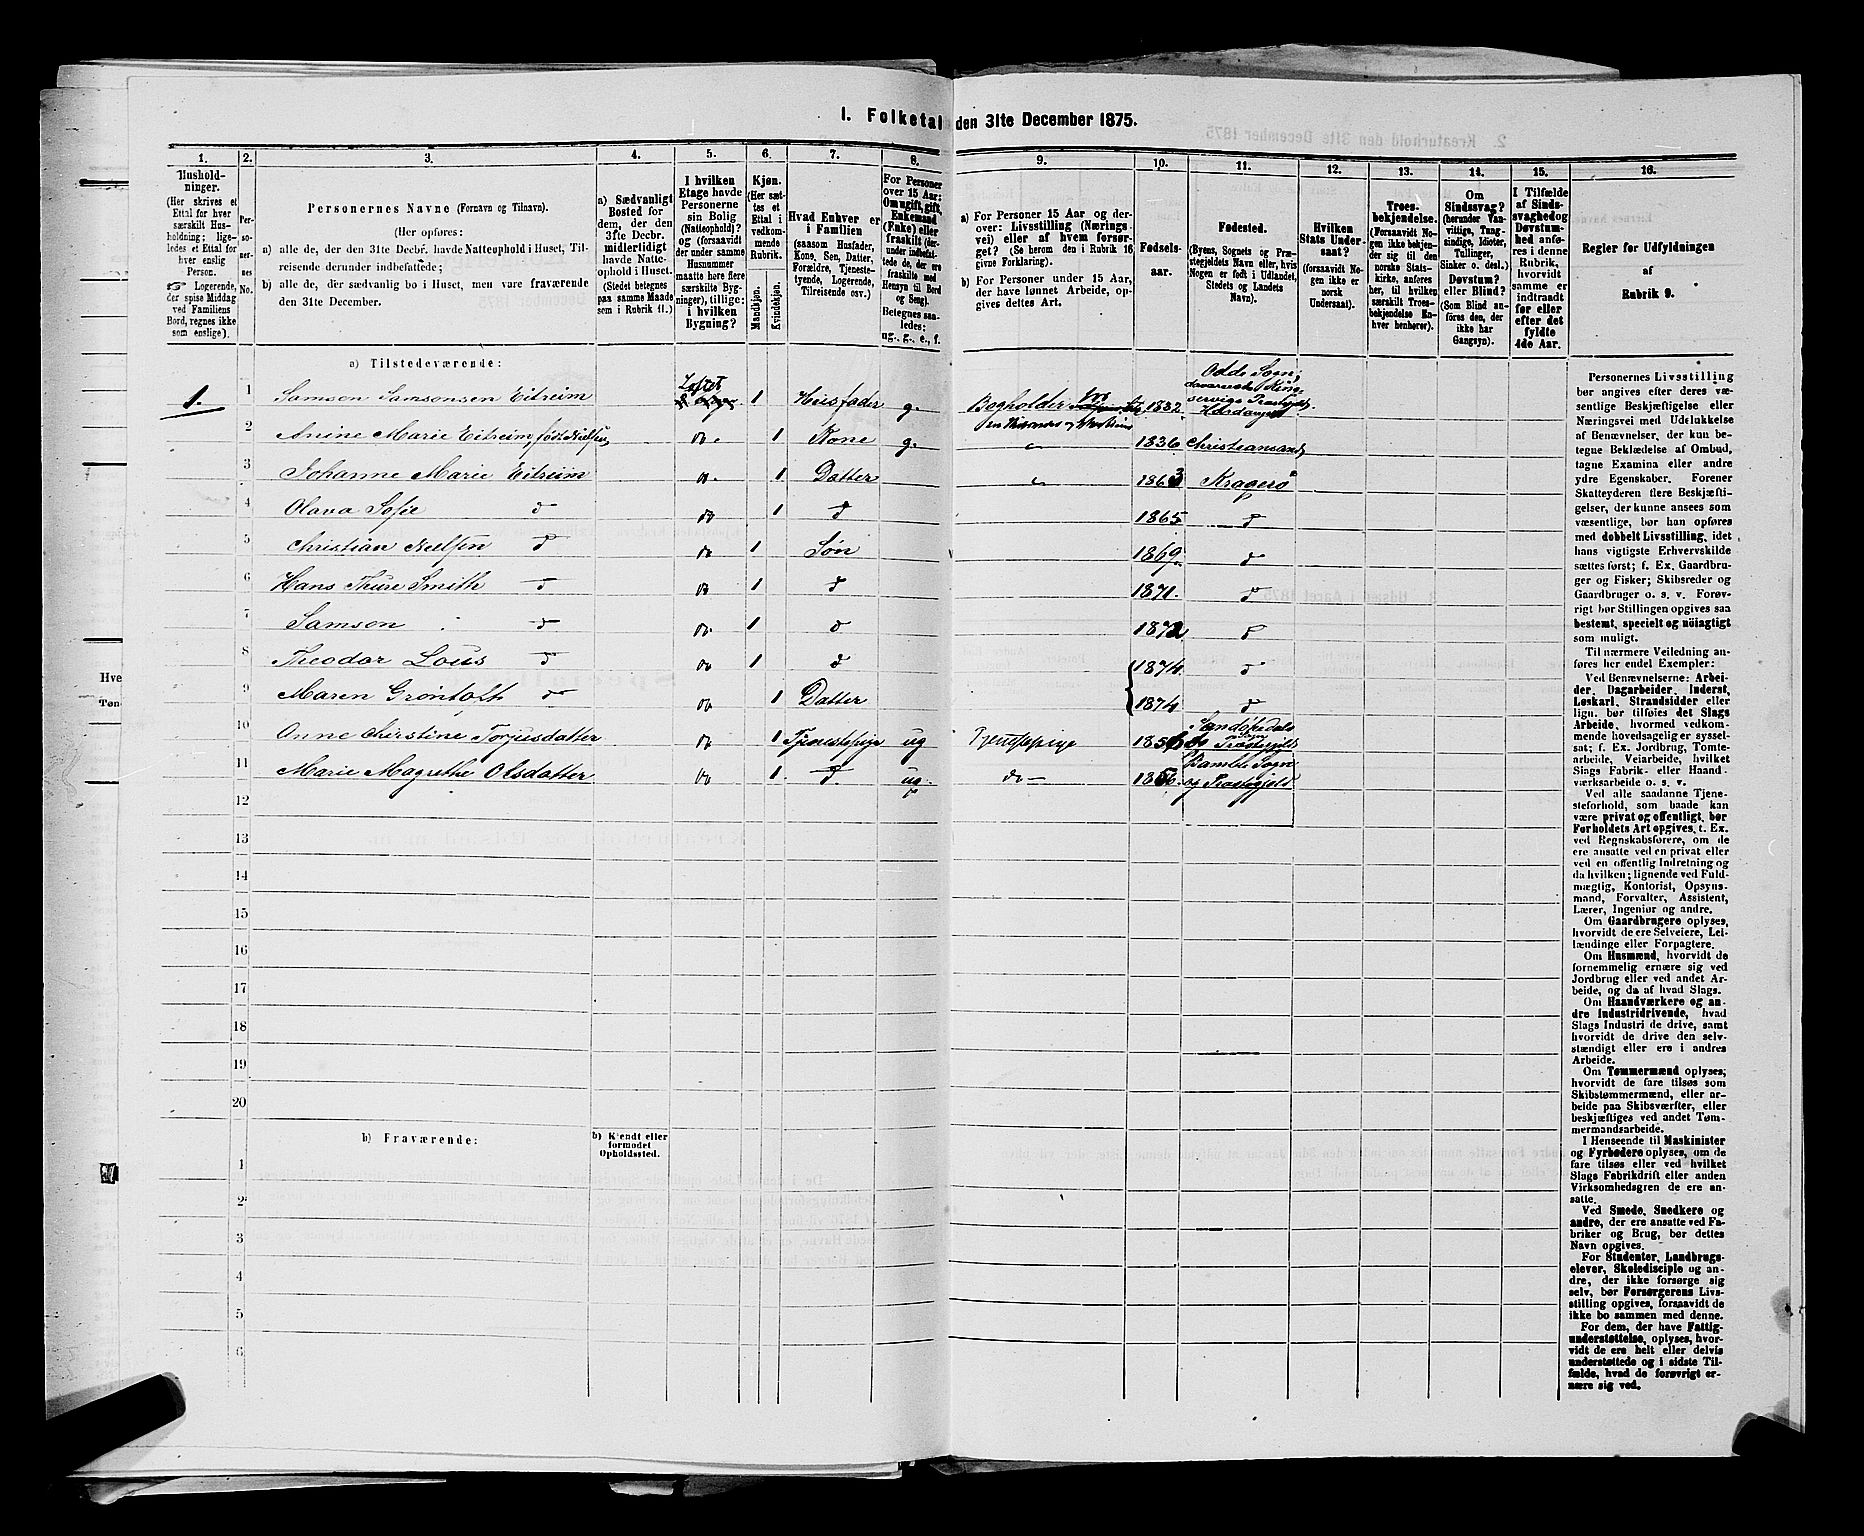 I. Folketal den 31te December 1875.
1.
Hushold-
ninger.
(Her skrives et
Ettal for hver
særskilt Hus-
holdning; lige-
ledes et Ettal
for hver
enslig
Person.
☞ Logerende,
der spise Middag
ved Familiens
Bord, regnes ikke
som enslige).
2.
Per-
so-
ner-
nes
No.
3.
Personernes Navne (Fornavn og Tilnavn).
(Her opføres:
a) alle de, der den 31te Decbr. havde Natteophold i Huset, Til-
reisende derunder indbefattede;
b) alle de, der sædvanlig bo i Huset, men vare fraværende
den 31te December.
4.
a) Sædvanligt
Bosted for
dem, der den
31te Decbr.
midlertidigt
havde Natte-
ophold i Huset.
(Stedet betegnes
paa samme Maade
som i Rubrik 11.)
5.
I hvilken
Etage havde
Personerne
sin Bolig
(Natteophold)?
og (forsaavidt
der under samme
Husnummer
maatte høre flere
særskilte Byg-
ninger), tillige:
i hvilken
Bygning?
6.
Kjøn.
(Her sæt-
tes et
Ettal i
vedkom-
mende
Rubrik.
Mandkjøn.
Kvindekjøn.
7.
Hvad Enhver er
i Familien
(saasom Husfader,
Kone, Søn, Datter,
Forældre, Tjeneste-
tyende, Logerende,
Tilreisende osv.)
8.
For Personer
over 15 Aar:
Om ugift, gift,
Enkemand
(Enke) eller
fraskilt (der-
under indbefat-
tede de, der ere
fraskilte med
Hensyn til Bord
og Seng).
Betegnes saa-
ledes:
ug., g., e., f.
9.
a) For Personer 15 Aar og der-
over: Livsstilling (Nærings-
vei) eller af hvem forsør-
get? (Se herom den i Rubrik 16
givne Forklaring).
b) For Personer under 15 Aar,
der have lønnet Arbeide, op-
gives dettes Art.
10.
Fødsels-
aar.
11.
Fødested.
(Byens, Sognets og Præ-
stegjeldets Navn eller, hvis
Nogen er født i Udlandet,
Stedets og Landets
Navn).
12.
Hvilken
Stats Under-
saat?
(forsaavidt No-
gen ikke er
norsk
Undersaat).
13.
Troes-
bekjendelse.
(Forsaavidt No-
gen ikke bekjen-
der sig til den
norske Stats-
kirke, anføres
her, til hvilken
særskilt Troes-
bekjendelse En-
hver henhører).
14.
Om
Sindssvag?
(herunder Van-
vittige, Tung-
sindige, Idioter,
Tullinger,
Sinker o. desl.)
Døvstum?
eller Blind?
(Som Blind an-
føres den, der
ikke har
Gangsyn).
15.
I Tilfælde
af Sinds-
svaghed og
Døvstum-
hed anfø-
res i denne
Rubrik,
hvorvidt
samme er
indtraadt
før eller
efter det
fyldte
4de Aar.
16.
Regler for Udfyldningen
af
Rubrik 9.
a) Tilstedeværende:
1. 1 Samson Samsonsen Eitreim Loftet 1 Husfader g. Bogholder 1832 Odde Sogn,
2 Anine Marie Eitreim, født Nielsen do. 1 Kone g. 1836 Christiansand
3 Johanne Marie Eitreim do. 1 Datter 1863 Kragerø
4 Olava Sofie d do 1 d 1865 d
5 Christian Nielsen d do 1 Søn 1869. d
6 Hans Thure Smith d do 1 d 1871. d
7 Samson d do 1 d 1872 d
8 Theodor Lous d do 1 d 1874. d
9 Maren Grøntoft do do 1 Datter 1874 d
10 Anne Christine Torjusdatter do 1 Tjenestepige ug Tjenestepige Sandøkedals
11 Marie Magrethe Olsdatter do 1. d. ug. do — Bamble Sogn
og Præstegjeld
12
13
14
15
16
17
18
19
20
b) Fraværende:
b) Kjendt eller
formodet
Opholdssted.
1
2
3
4
5
6
Personernes Livsstilling
bør angives efter deres væ-
sentlige Beskjæftigelse eller
Næringsvei med Udelukkelse
af Benævnelser, der kun be-
tegne Beklædelse af Ombud,
tagne Examina eller andre
ydre Egenskaber. Forener
Skatteyderen flere Beskjæfti-
gelser, der kunne ansees som
væsentlige, bør han opføres
med dobbelt Livsstilling, idet
hans vigtigste Erhvervskilde
sættes først; f. Ex. Gaardbru-
ger og Fisker; Skibsreder og
Gaardbruger o. s. v. Forøv-
rigt bør Stillingen opgives saa
bestemt, specielt og nöiagtigt
som muligt.
Til nærmere Veiledning an-
føres her endel Exempler:
Ved Benævnelserne: Arbei-
der, Dagarbeider, Inderst,
Løskarl, Strandsidder eller
lign. bør tilføies det Slags
Arbeide, hvormed vedkom-
mende hovedsagelig er syssel-
sat; f. Ex. Jordbrug, Tomte-
arbeide, Veiarbeide, hvilket
Slags Fabrik- eller Haand-
værksarbeide o. s. v.
Ved alle saadanne Tjene-
steforhold, som baade kan
være privat og offentligt, bør
Forholdets Art opgives, t. Ex.
ved Regnskabsførere, om de
ere ansatte ved en privat eller
ved en offentlig Indretning og
da hvilken; lignende ved Fuld-
mægtig, Kontorist, Opsyns-
mand, Forvalter, Assistent,
Lærer, Ingeniør og andre.
Om Gaardbrugere oplyses,
hvorvidt de ere Selveiere, Lei-
lændinge eller Forpagtere.
Om Husmænd, hvorvidt de
fornemmelig ernære sig ved
Jordbrug eller ved andet Ar-
beide, og da af hvad Slags.
Om Haandværkere og an-
dre Industridrivende, hvad
Slags Industri de drive, samt
hvorvidt de drive den selv-
stændigt eller ere i andres
Arbeide.
Om Tømmermænd oplyses,
hvorvidt de fare tilsøs som
Skibstømmermænd, eller ar-
beide paa Skibsværfter, eller
beskjæftiges ved andet Tøm-
mermandsarbeide.
I Henseende til Maskinister
og Fyrbødere oplyses, om de
fare tilsøs eller ved hvilket
Slags Fabrikdrift eller anden
Virksomhedsgren de ere an-
satte.
Ved Smede, Snedkere og
andre, der ere ansatte ved Fa-
briker og Brug, bør dettes
Navn opgives.
For Studenter, Landbrugs-
elever, Skoledisciple og an-
dre, der ikke forsørge sig
selv, bør Forsørgerens Livs-
stilling opgives, forsaavidt de
ikke bo sammen med denne.
For dem, der have Fattig-
understøttelse, oplyses, hvor-
vidt de ere helt eller delvis
understøttede og i sidste Til-
fælde, hvad de forøvrigt er-
nære sig ved.